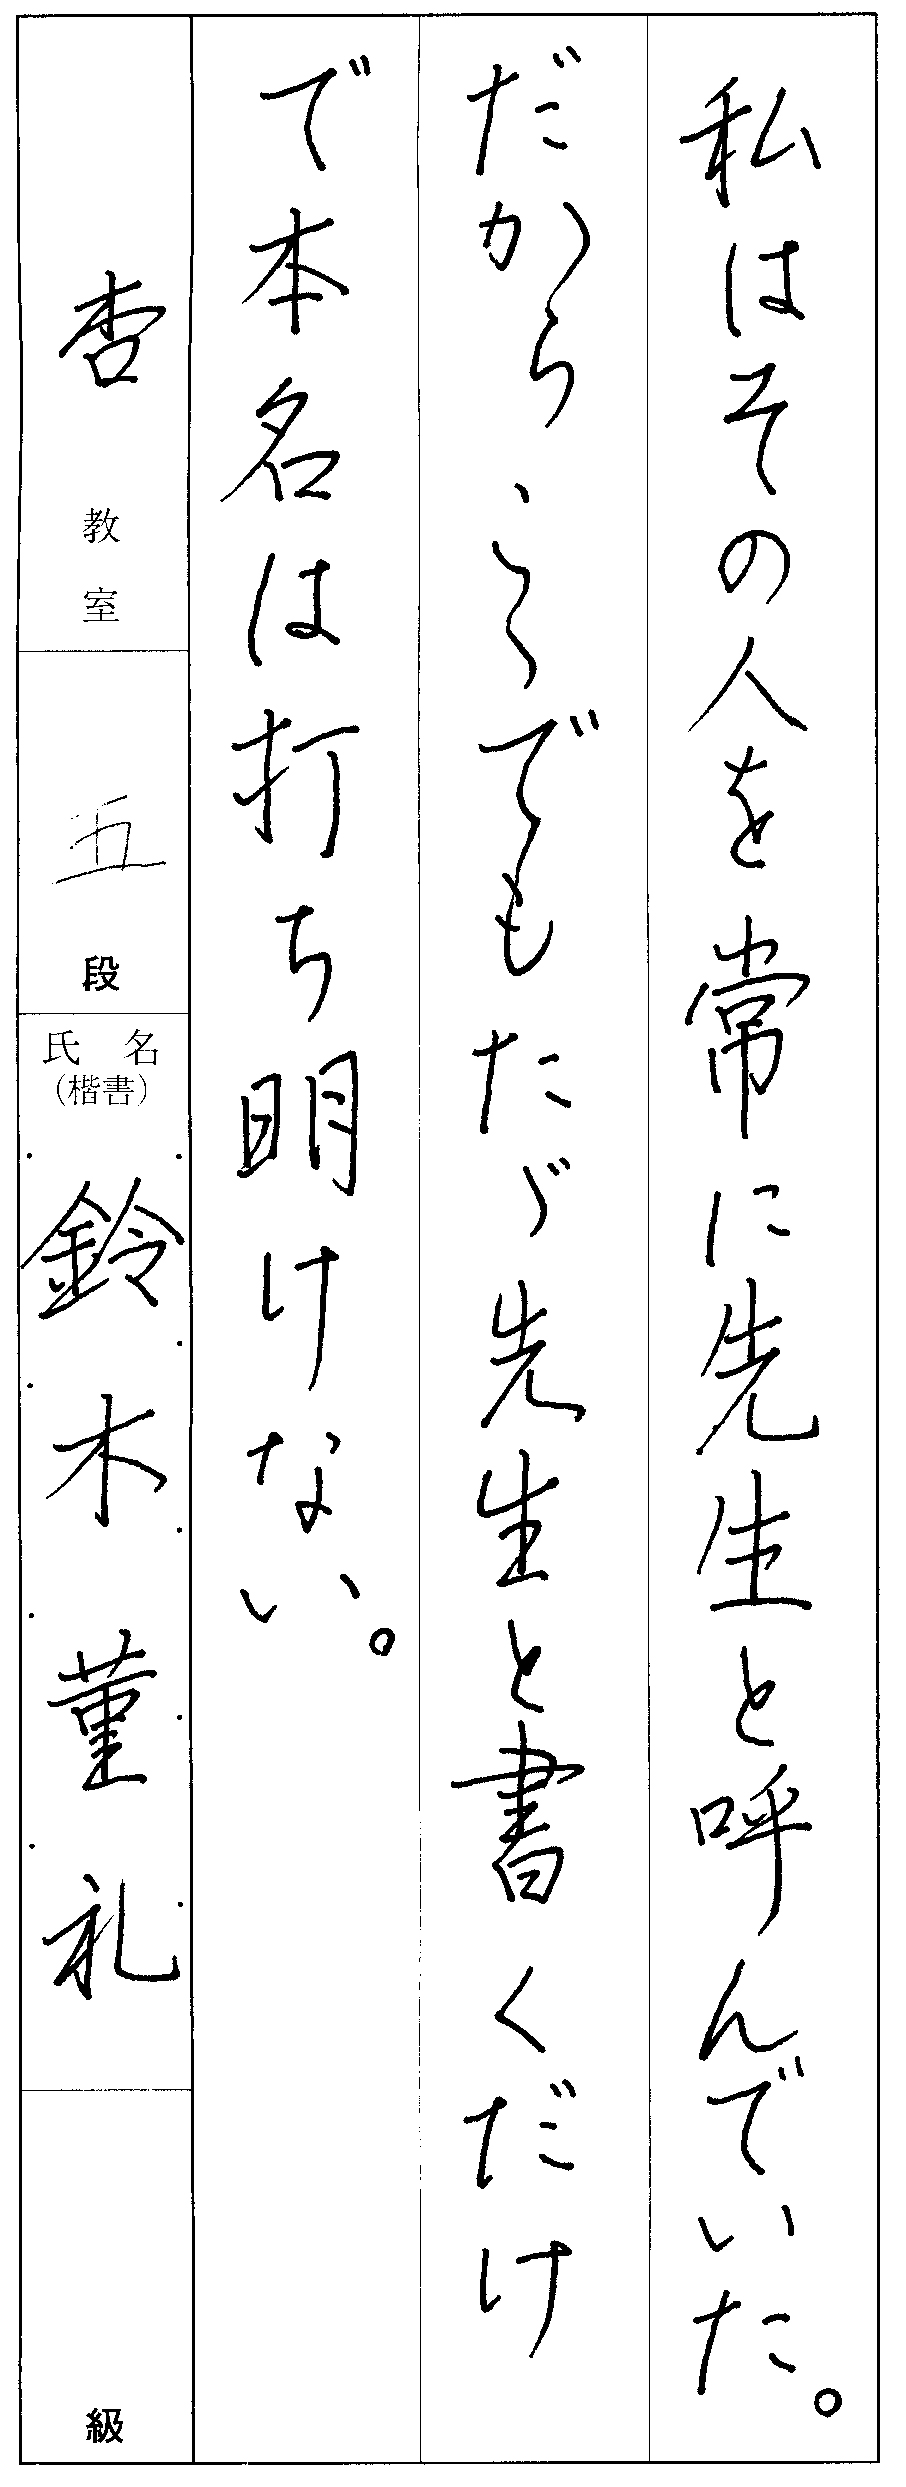 私はその人を常に先生と呼んでいた。
だからこゝでもたゞ先生と書くだけ
で本名は打ち明けない。
杏教室
五段
氏名
(楷書)
鈴木菫礼
級